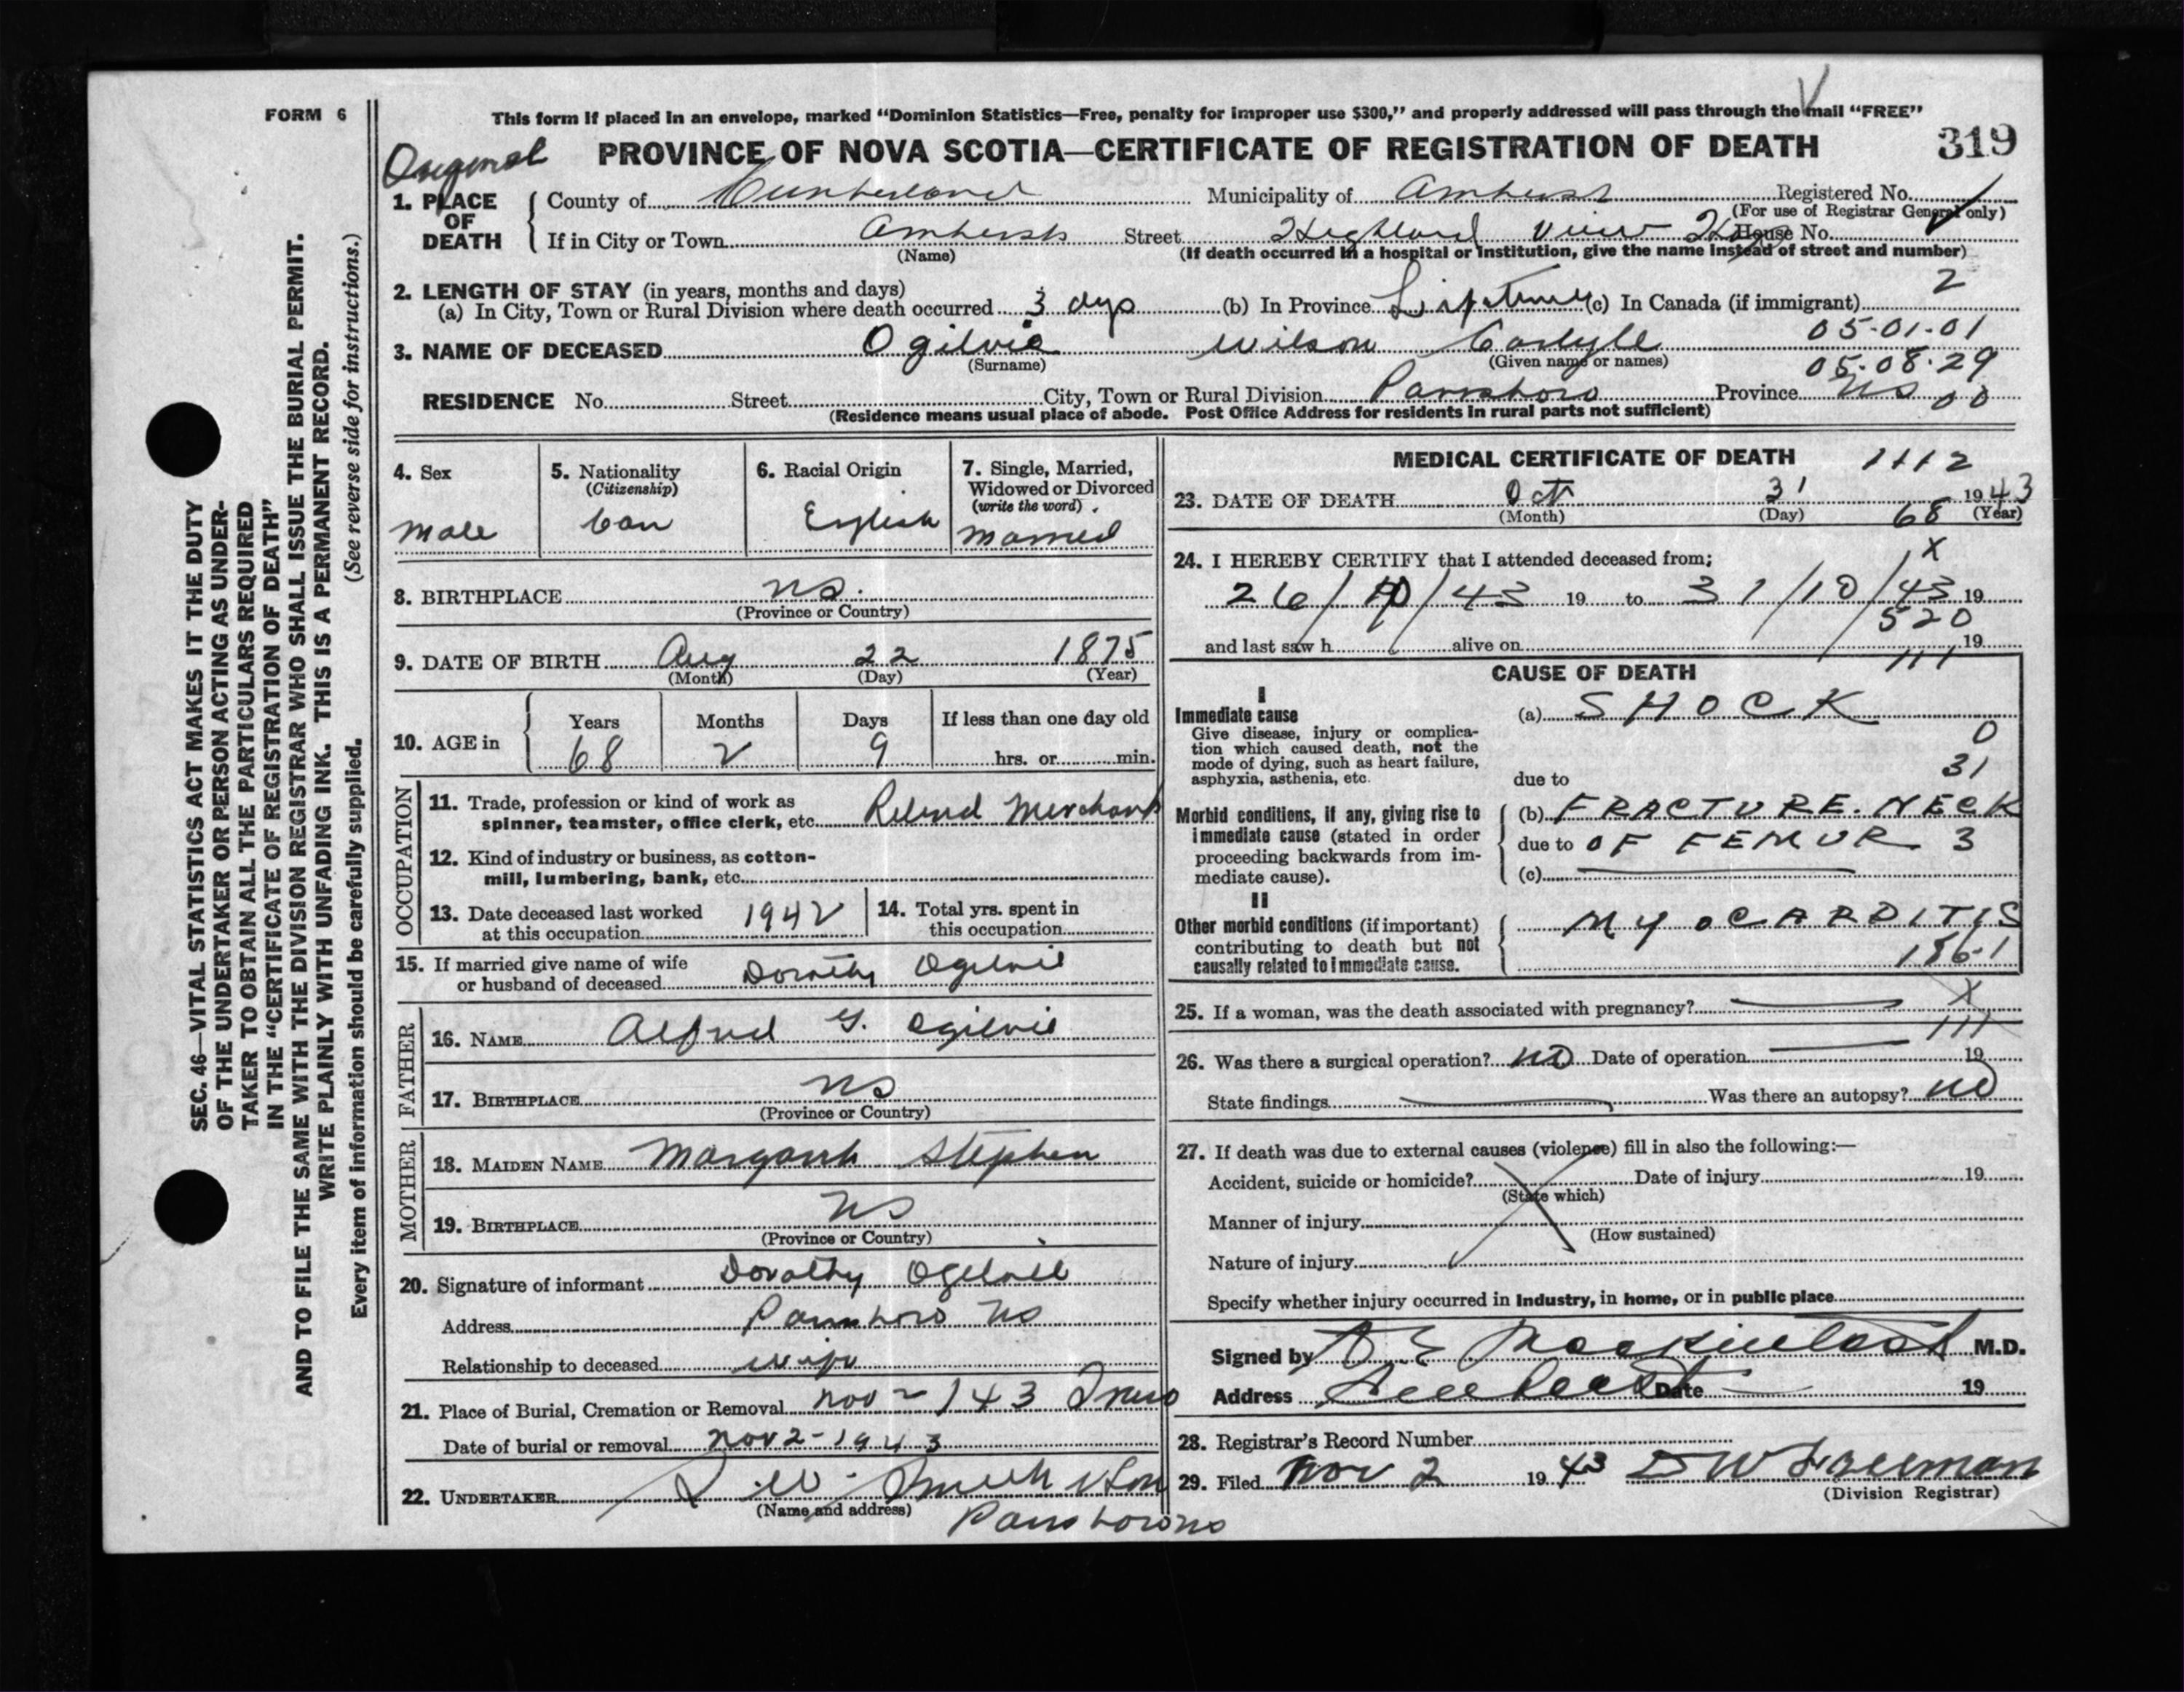 FORM 6
This form if placed in an envelope, marked "Dominion Statistics—Free, penalty for improper use $300," and properly addressed will pass through the mail "FREE"
Original PROVINCE OF NOVA SCOTIA—CERTIFICATE OF REGISTRATION OF DEATH 319
1. PLACE OF DEATH
County of Cumberland Municipality of Amherst Registered No.
(For use of Registrar General only)
If in City or Town Amherst Street Highland View House No.
(Name) (If death occurred in a hospital or institution, give the name instead of street and number)
2. LENGTH OF STAY (in years, months and days) 2
(a) In City, Town or Rural Division where death occurred 3 dys (b) In Province Lifetime (c) In Canada (if immigrant)
05-01-01
3. NAME OF DECEASED Ogilvie Wilson Carlyle
(Surname) (Given name or names) 05.08.29
RESIDENCE No. Street City, Town or Rural Division Parrsboro Province NS 00
(Residence means usual place of abode. Post Office Address for residents in rural parts not sufficient)
4. Sex
Male
5. Nationality
(Citizenship)
Can
6. Racial Origin
English
7. Single, Married,
Widowed or Divorced
(write the word)
Married
8. BIRTHPLACE NS.
(Province or Country)
9. DATE OF BIRTH Aug 22 1875
(Month) (Day) (Year)
10. AGE in
Years Months Days If less than one day old
68 2 9 hrs. or min.
OCCUPATION
11. Trade, profession or kind of work as
spinner, teamster, office clerk, etc. Retired Merchant
12. Kind of industry or business, as cotton-
mill, lumbering, bank, etc.
13. Date deceased last worked
at this occupation 1942
14. Total yrs. spent in
this occupation
15. If married give name of wife
or husband of deceased Dorothy Ogilvie
FATHER
16. NAME Alfred G. Ogilvie
17. BIRTHPLACE NS
(Province or Country)
MOTHER
18. MAIDEN NAME Margaret Stephen
19. BIRTHPLACE NS
(Province or Country)
20. Signature of informant Dorothy Ogilvie
Address Parrsboro NS
Relationship to deceased wife
21. Place of Burial, Cremation or Removal Nov 2 /43 Truro
Date of burial or removal Nov 2-1943
22. UNDERTAKER Smith & Son
(Name and address) Parrsboro NS
MEDICAL CERTIFICATE OF DEATH 1112
23. DATE OF DEATH Oct 31 1943
(Month) (Day) 68 (Year)
24. I HEREBY CERTIFY that I attended deceased from; X
26/10/43 19 to 31/10/43 19
520
and last saw h alive on 19
111
CAUSE OF DEATH
I
Immediate cause
Give disease, injury or complica-
tion which caused death, not the
mode of dying, such as heart failure,
asphyxia, asthenia, etc.
(a) SHOCK
0
31
due to
Morbid conditions, if any, giving rise to
immediate cause (stated in order
proceeding backwards from im-
mediate cause).
(b) FRACTURE. NECK
due to OF FEMUR 3
(c)
II
Other morbid conditions (if important)
contributing to death but not
causally related to immediate cause.
MYOCARDITIS
186-1
25. If a woman, was the death associated with pregnancy? X
111
26. Was there a surgical operation? NO Date of operation 19
State findings Was there an autopsy? NO
27. If death was due to external causes (violence) fill in also the following:—
Accident, suicide or homicide? Date of injury 19
(State which)
Manner of injury
(How sustained)
Nature of injury
Specify whether injury occurred in Industry, in home, or in public place
Signed by M.D.
Address Date 19
28. Registrar's Record Number
29. Filed Nov 2 1943
(Division Registrar)
SEC. 46—VITAL STATISTICS ACT MAKES IT THE DUTY
OF THE UNDERTAKER OR PERSON ACTING AS UNDER-
TAKER TO OBTAIN ALL THE PARTICULARS REQUIRED
IN THE "CERTIFICATE OF REGISTRATION OF DEATH"
AND TO FILE THE SAME WITH THE DIVISION REGISTRAR WHO SHALL ISSUE THE BURIAL PERMIT.
WRITE PLAINLY WITH UNFADING INK. THIS IS A PERMANENT RECORD.
Every item of information should be carefully supplied. (See reverse side for instructions.)